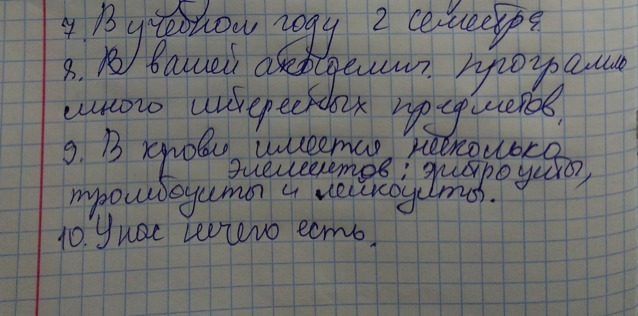 7. В учебном году 2 семестра.
8. В вашей академич. программе
много интересных предметов.
9. В крови имеется несколько
элементов: эритроциты,
тромбоциты и лейкоциты.
10. У нас нечего есть.